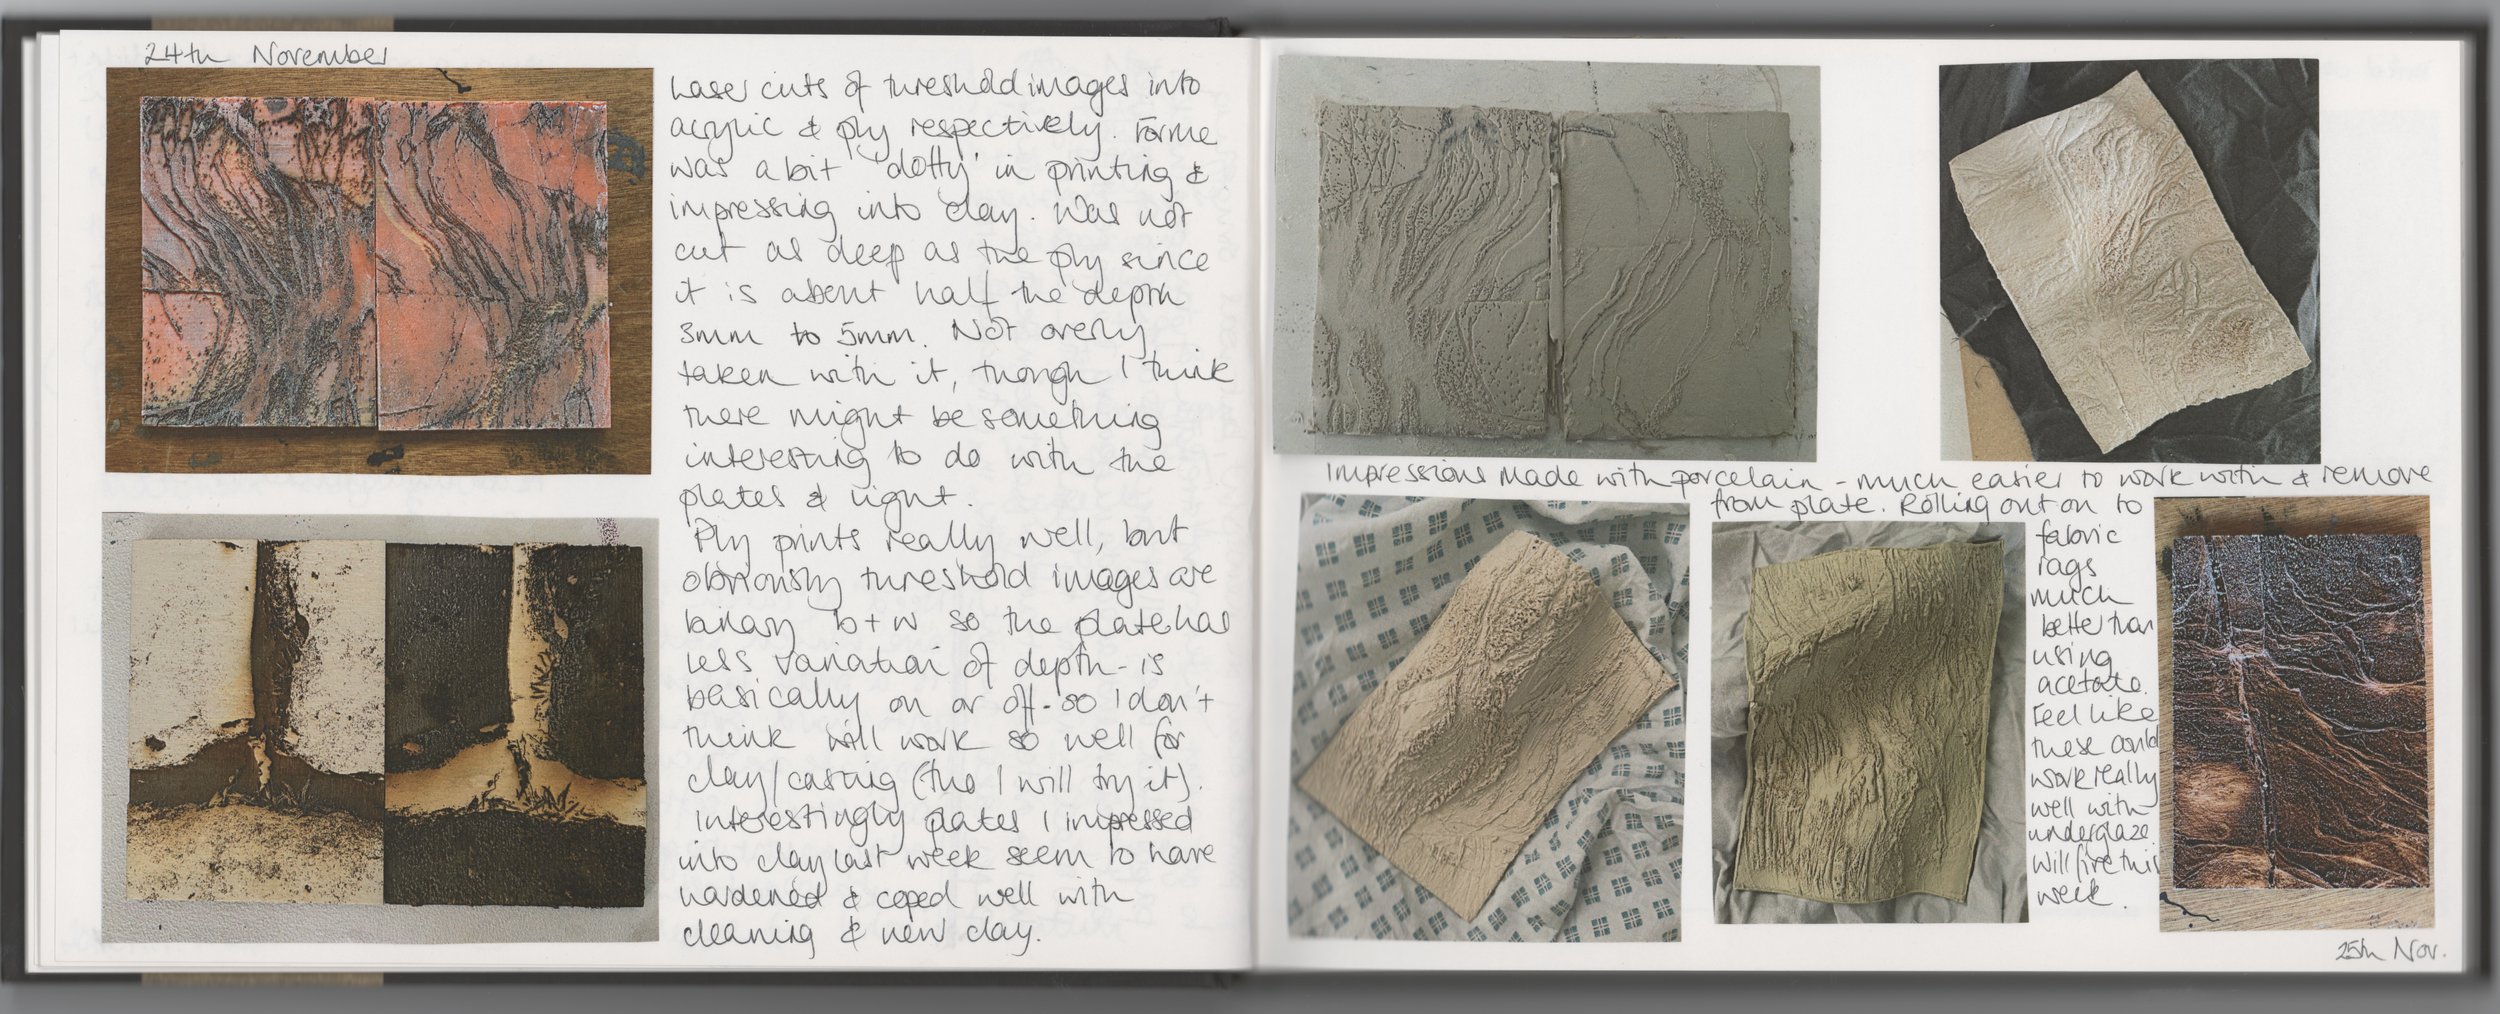 24th November
Laser cuts of threshold images into
acrylic & ply respectively. Forme
was a bit 'dotty' in printing &
impressing into clay. Was not
cut as deep as the ply since
it is about half the depth
3mm to 5mm. Not overly
taken with it, though I think
there might be something
interesting to do with the
plates & light.
Ply prints really well, but
obviously threshold images are
binary b+w so the plate has
less variation of depth - is
basically on or off - so I don't
think will work so well for
clay/casting (tho I will try it).
Interestingly plates I impressed
into clay last week seem to have
hardened & coped well with
cleaning & new clay.
Impressions made with porcelain - much easier to work with & remove
from plate. Rolling out on to
fabric
rags
much
better than
using
acetate.
Feel like
these could
work really
well with
underglaze
Will fire this
week.
25th Nov.